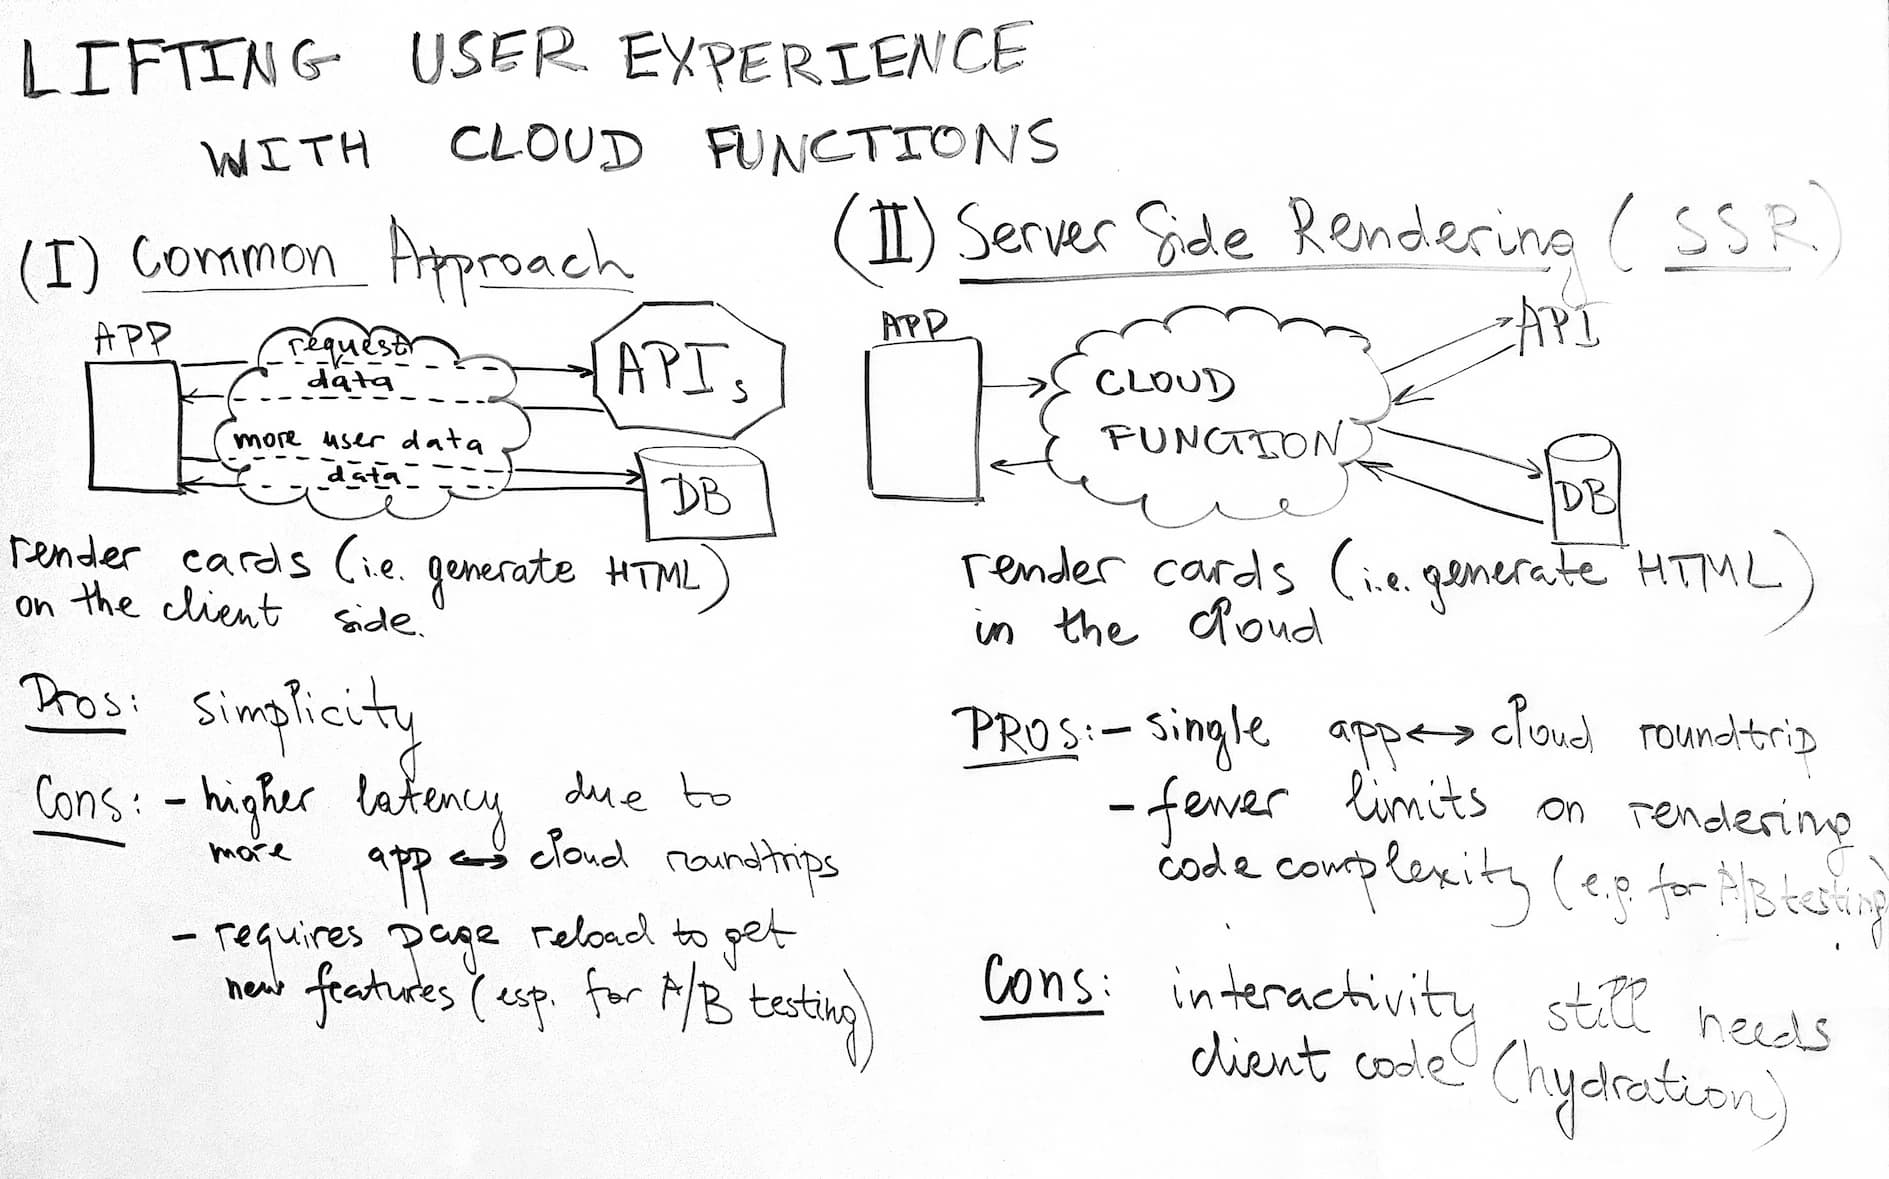 LIFTING USER EXPERIENCE
WITH CLOUD FUNCTIONS
(I) Common Approach
APP
request
data
more user data
data
APIs
DB
render cards (i.e. generate HTML)
on the client side.
Pros: simplicity
Cons: - higher latency due to
more app ↔ cloud roundtrips
- requires page reload to get
new features (esp. for A/B testing)
(II) Server Side Rendering (SSR)
APP
CLOUD
FUNCTION
API
DB
render cards (i.e. generate HTML)
in the cloud
PROS: - single app ↔ cloud roundtrip
- fewer limits on rendering
code complexity (e.g. for A/B testing)
Cons: interactivity still needs
client code (hydration)